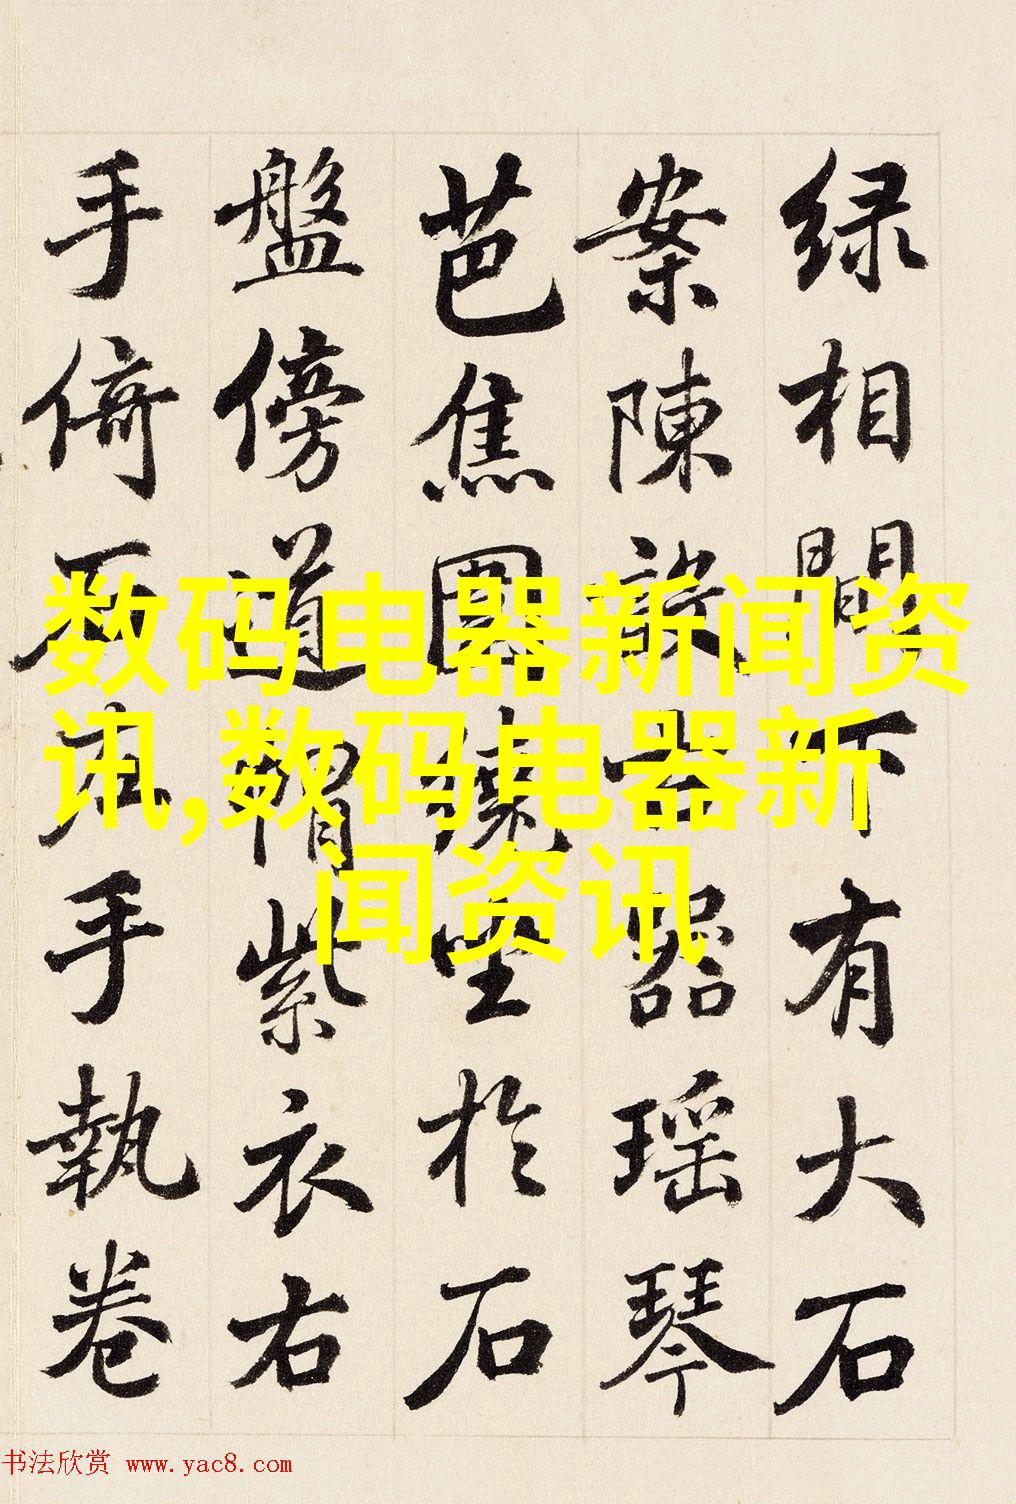 绿相間下有大石
案陳設古器瑶琴
芭焦圍繞坐於石
盤傍道帽紫衣右
手倚石左手執卷
数码电器新闻资
讯,数码电器新
闻资讯
书法欣赏 www.yac8.com